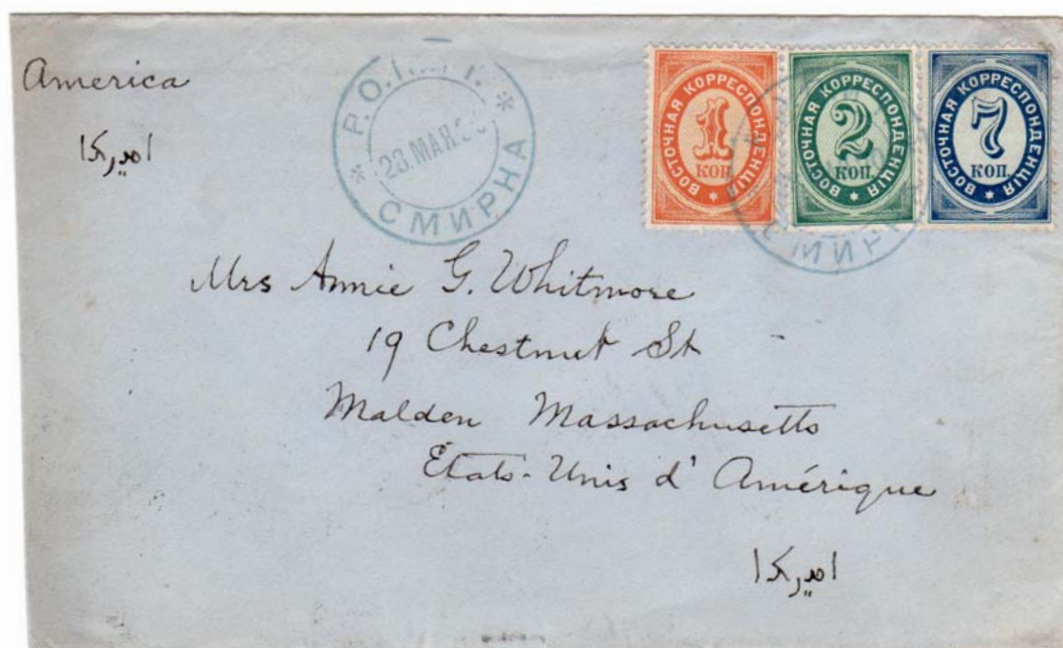 America
امیرکا
Р.О.
23.MAR.
СМИРНА
ВОСТОЧНАЯ КОРРЕСПОНДЕНЦІЯ
1
КОП.
ВОСТОЧНАЯ КОРРЕСПОНДЕНЦІЯ
2
КОП.
ВОСТОЧНАЯ КОРРЕСПОНДЕНЦІЯ
7
КОП.
СМИРНА
Mrs Annie G. Whitmore
19 Chestnut St
Malden Massachusetts
États-Unis d'Amérique
امیرکا